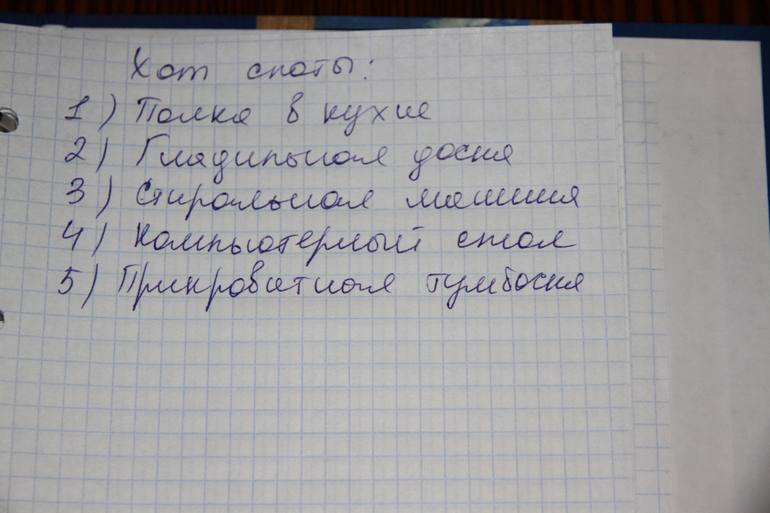 Хот споты:
1) Полка в кухне
2) Гладильная доска
3) Стиральная машина
4) Компьютерный стол
5) Прикроватная тумбочка